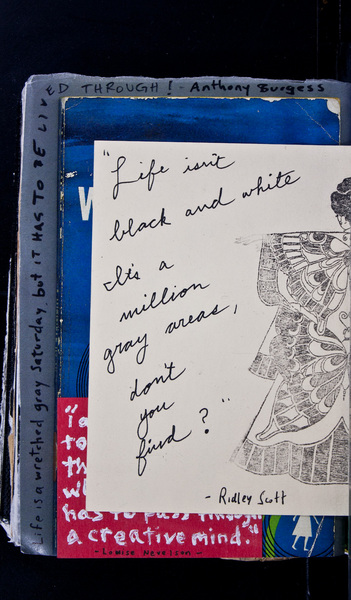 Life is a wretched gray Saturday, but it HAS TO BE LIVED THROUGH! - Anthony Burgess
W
"Life isn't
black and white
It's a
million
gray areas,
don't
you
find?"
- Ridley Scott
"I
to
th
has to pass through
a creative mind."
- Louise Nevelson -